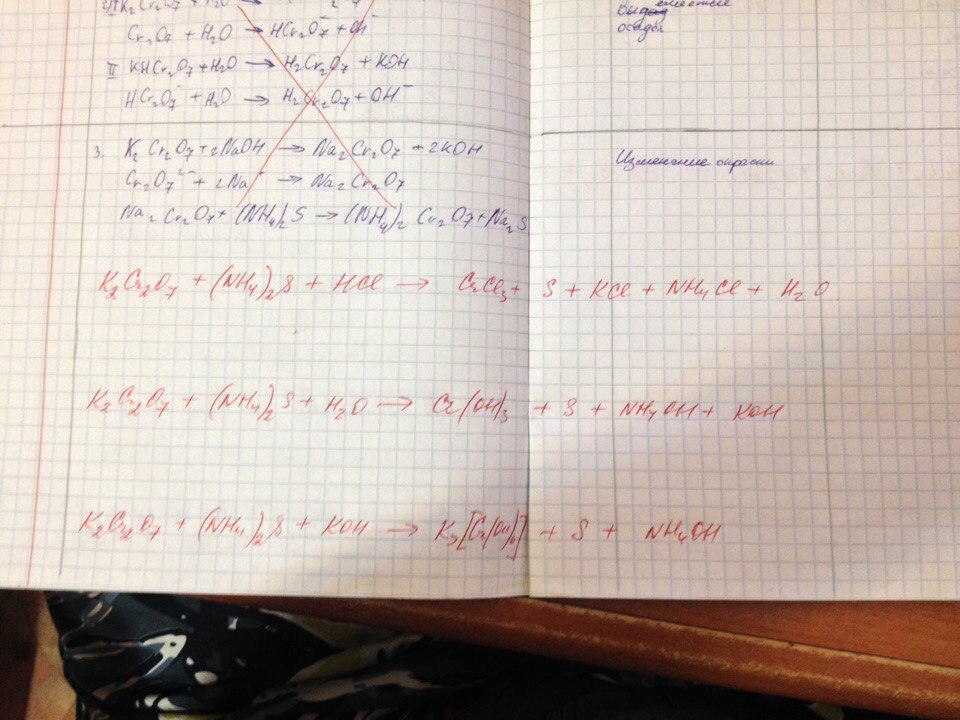 Cr₂O₇ + H₂O → HCr₂O₇⁻ + OH⁻
II KHCr₂O₇ + H₂O → H₂Cr₂O₇ + KOH
HCr₂O₇⁻ + H₂O → H₂Cr₂O₇ + OH⁻
осадок
3. K₂Cr₂O₇ + 2NaOH → Na₂Cr₂O₇ + 2KOH
Изменение окраски
Cr₂O₇²⁻ + 2Na⁺ → Na₂Cr₂O₇
Na₂Cr₂O₇ + (NH₄)₂S → (NH₄)₂Cr₂O₇ + Na₂S
K₂Cr₂O₇ + (NH₄)₂S + HCl → CrCl₃ + S + KCl + NH₄Cl + H₂O
K₂Cr₂O₇ + (NH₄)₂S + H₂O → Cr(OH)₃ + S + NH₄OH + KOH
K₂Cr₂O₇ + (NH₄)₂S + KOH → K₃[Cr(OH)₆] + S + NH₄OH